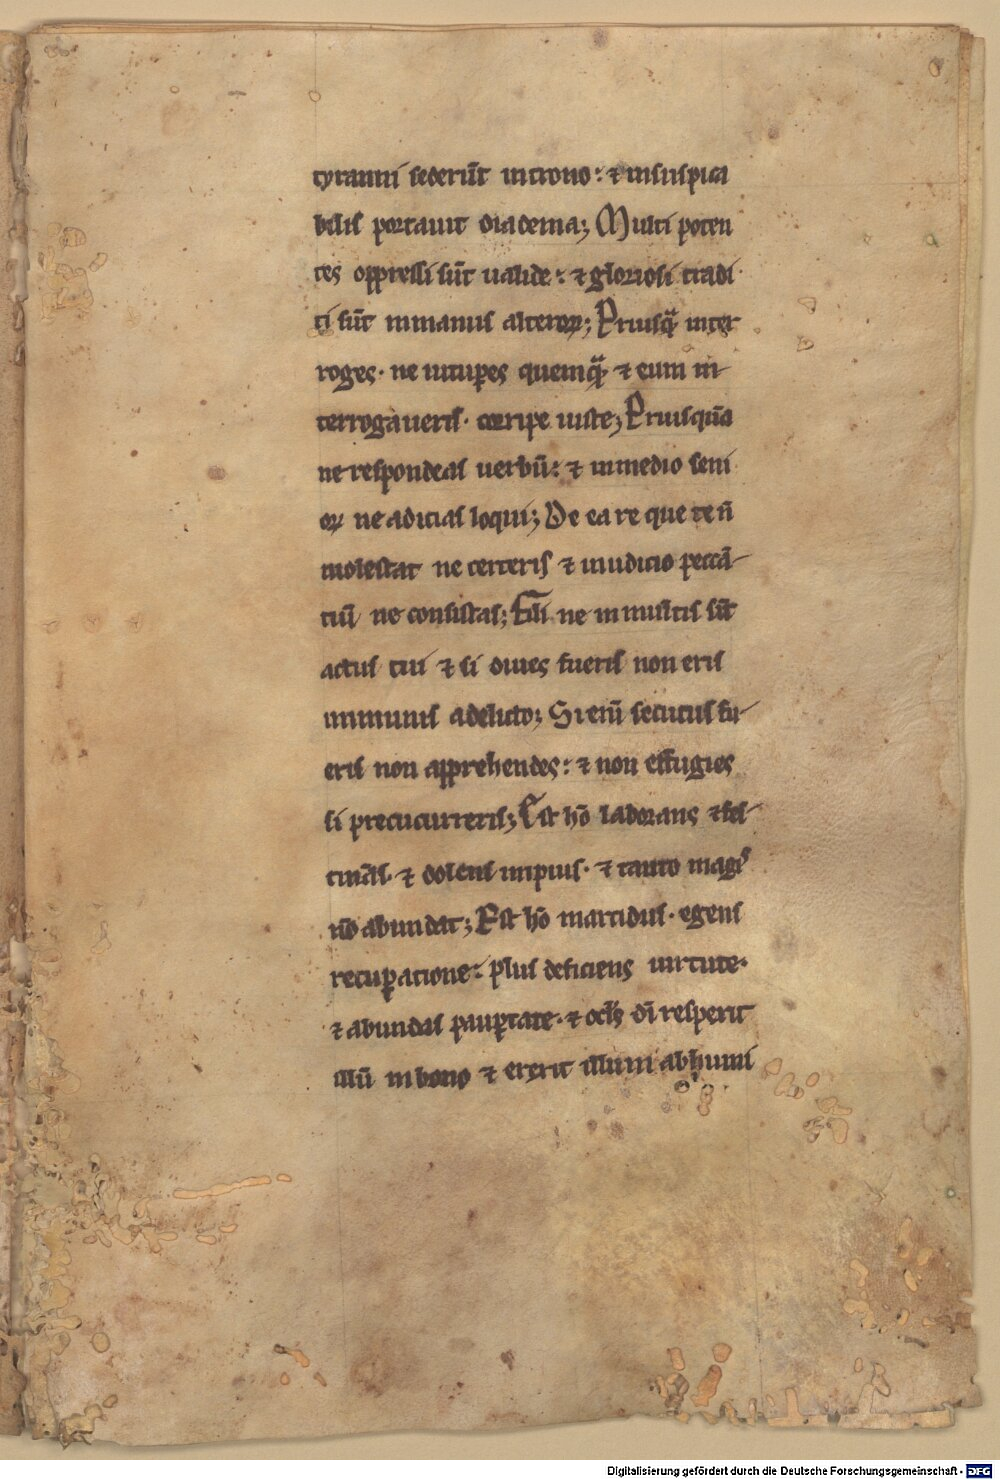 tyranni sederūt introno: ⁊ insuspica
bilis portauit diadema; Multi poten
tes oppressi sūt ualide: ⁊ gloriosi tradi
ti sūt inmanus alteroꝝ; Priusꝗ̄ inter
roges· ne uituꝑes quemꝗ̄ ⁊ eum in
terrogaueris· corripe iuste; Priusquā
ne respondeas uerbū: ⁊ inmedio seni
oꝝ ne adicias loqui; De ea re que te ñ
molestat ne certeris ⁊ iniudicio peccā
tiū ne consistas; Fili ne in multis sīt
actus tui ⁊ si diues fueris non eris
inmunis adelicto; Si enī secutus fu
eris non apprehendes: ⁊ non effugies
si precucurreris; Est hō laborans ⁊ fes
tināſ· ⁊ dolens impius· ⁊ tanto magis
nō abundat; Est hō marcidus· egens
recuꝑatione: plus deficiens uirtute·
⁊ abundas pauꝑtate· ⁊ oclꝰ dī resperit
illū inbono ⁊ erexit illum abhumi
Digitalisierung gefördert durch die Deutsche Forschungsgemeinschaft - DFG